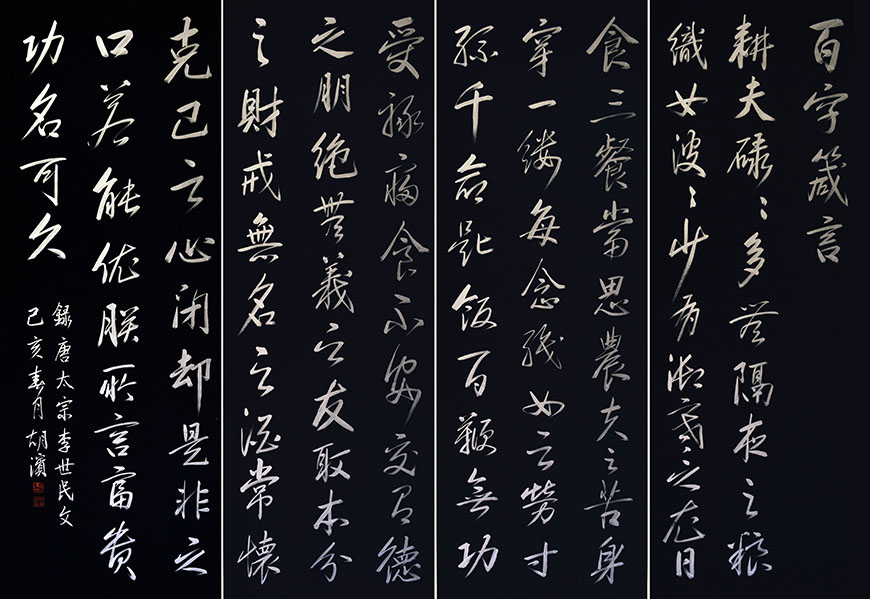 百字箴言
耕夫碌〻多無隔夜之粮
織女波〻少有御寒之衣日
食三餐當思農夫之苦身
穿一缕每念織女之勞寸
絲千命匙飯百鞭無功
受祿寢食不安交有德
之朋绝無義之友取本分
之財戒無名之酒常懷
克己之心闭却是非之
口若能依朕所言富贵
功名可久
録唐太宗李世民文
己亥春月胡濱